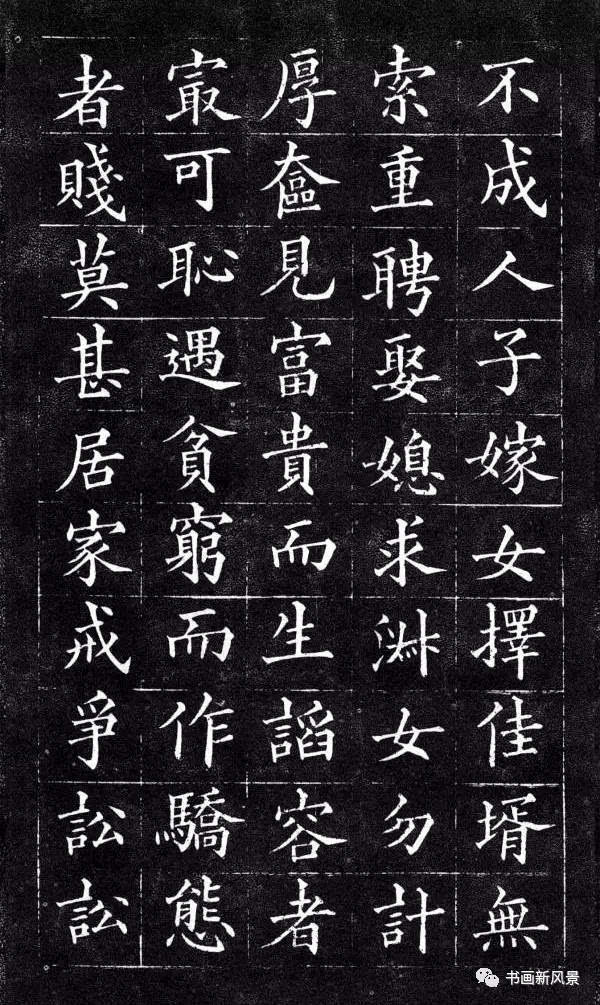 不成人子嫁女擇佳壻無
索重聘娶媳求淑女勿計
厚奩見富貴而生謟容者
㝡可恥遇貧窮而作驕態
者賤莫甚居家戒爭訟訟
书画新风景